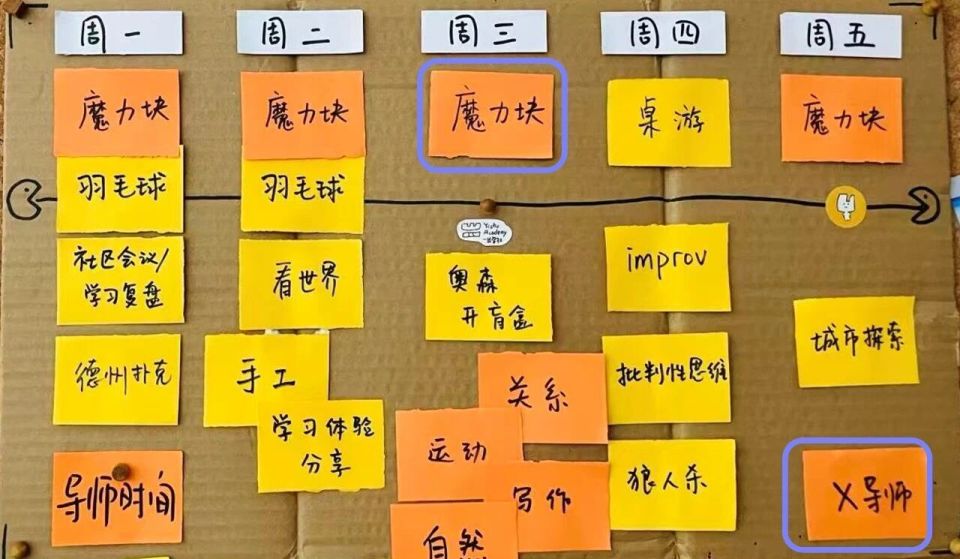 周一
周二
周三
周四
周五
魔力块
魔力块
魔力块
桌游
魔力块
羽毛球
羽毛球
Yishu
Academy
社区会议/
学习复盘
看世界
奥森
开盲盒
improv
城市探索
德州扑克
手工
学习体验
分享
关系
运动
写作
自然
批判性思维
狼人杀
导师时间
X导师